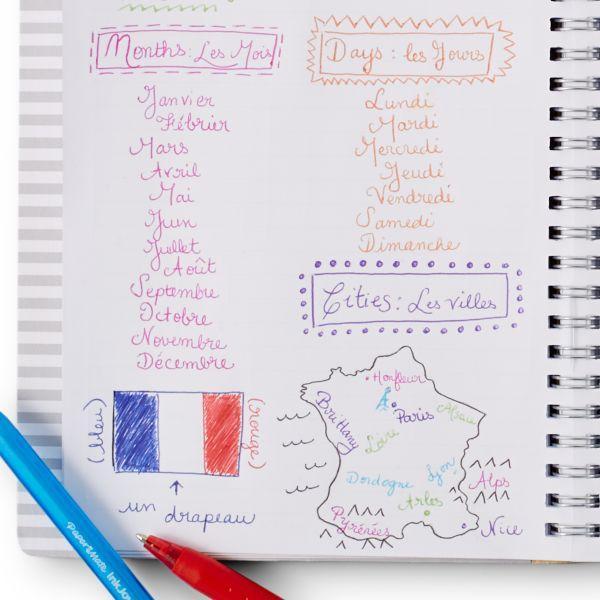 Months: Les Mois
Janvier
Fébrier
Mars
Avril
Mai
Jun
Juillet
Août
Septembre
Octobre
Novembre
Décembre
(bleu)
(rouge)
un drapeau
Days: les Jours
Lundi
Mardi
Mercredi
Jeudi
Vendredi
Samedi
Dimanche
Cities: Les villes
Honfleur
Brittany
Paris
Alsau
Loire
Dordogne
Lyon
Alps
Arles
Pyrénées
Nice
PAPER MATE INKJOY